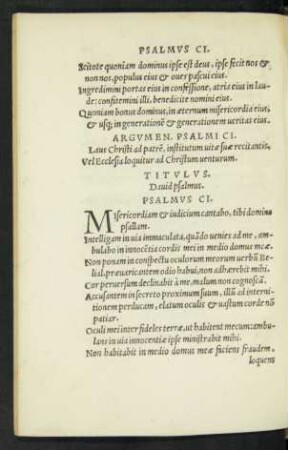 PSALMVS CI.
Scitote quoniam dominus ipse est deus, ipse fecit nos &
non nos, populus eius & oues pascui eius.
Ingredimini portas eius in confessione, atria eius in lau-
de: confitemini illi, benedicite nomini eius.
Quoniam bonus dominus, in æternum misericordia eius,
& usq; in generationē & generationem ueritas eius.
ARGVMEN. PSALMI CI.
Laus Christi ad patrē, institutum uitæ suæ recitantis,
Vel Ecclesia loquitur ad Christum uenturum.
TITVLVS.
Dauid psalmus.
PSALMVS CI.
Misericordiam & iudicium cantabo, tibi domine
psallam.
Intelligam in uia immaculata, quādo uenies ad me, am-
bulabo in innocētia cordis mei in medio domus meæ.
Non ponam in conspectu oculorum meorum uerbū Be-
lial, præuaricantem odio habui, non adhærebit mihi.
Cor peruersum declinabit à me, malum non cognoscā.
Accusantem in secreto proximum suum, illū ad interni-
tionem perducam, elatum oculis & uastum corde nō
patiar.
Oculi mei inter fideles terræ, ut habitent mecum: ambu-
lans in uia innocentiæ ipse ministrabit mihi.
Non habitabit in medio domus meæ faciens fraudem,
loquens